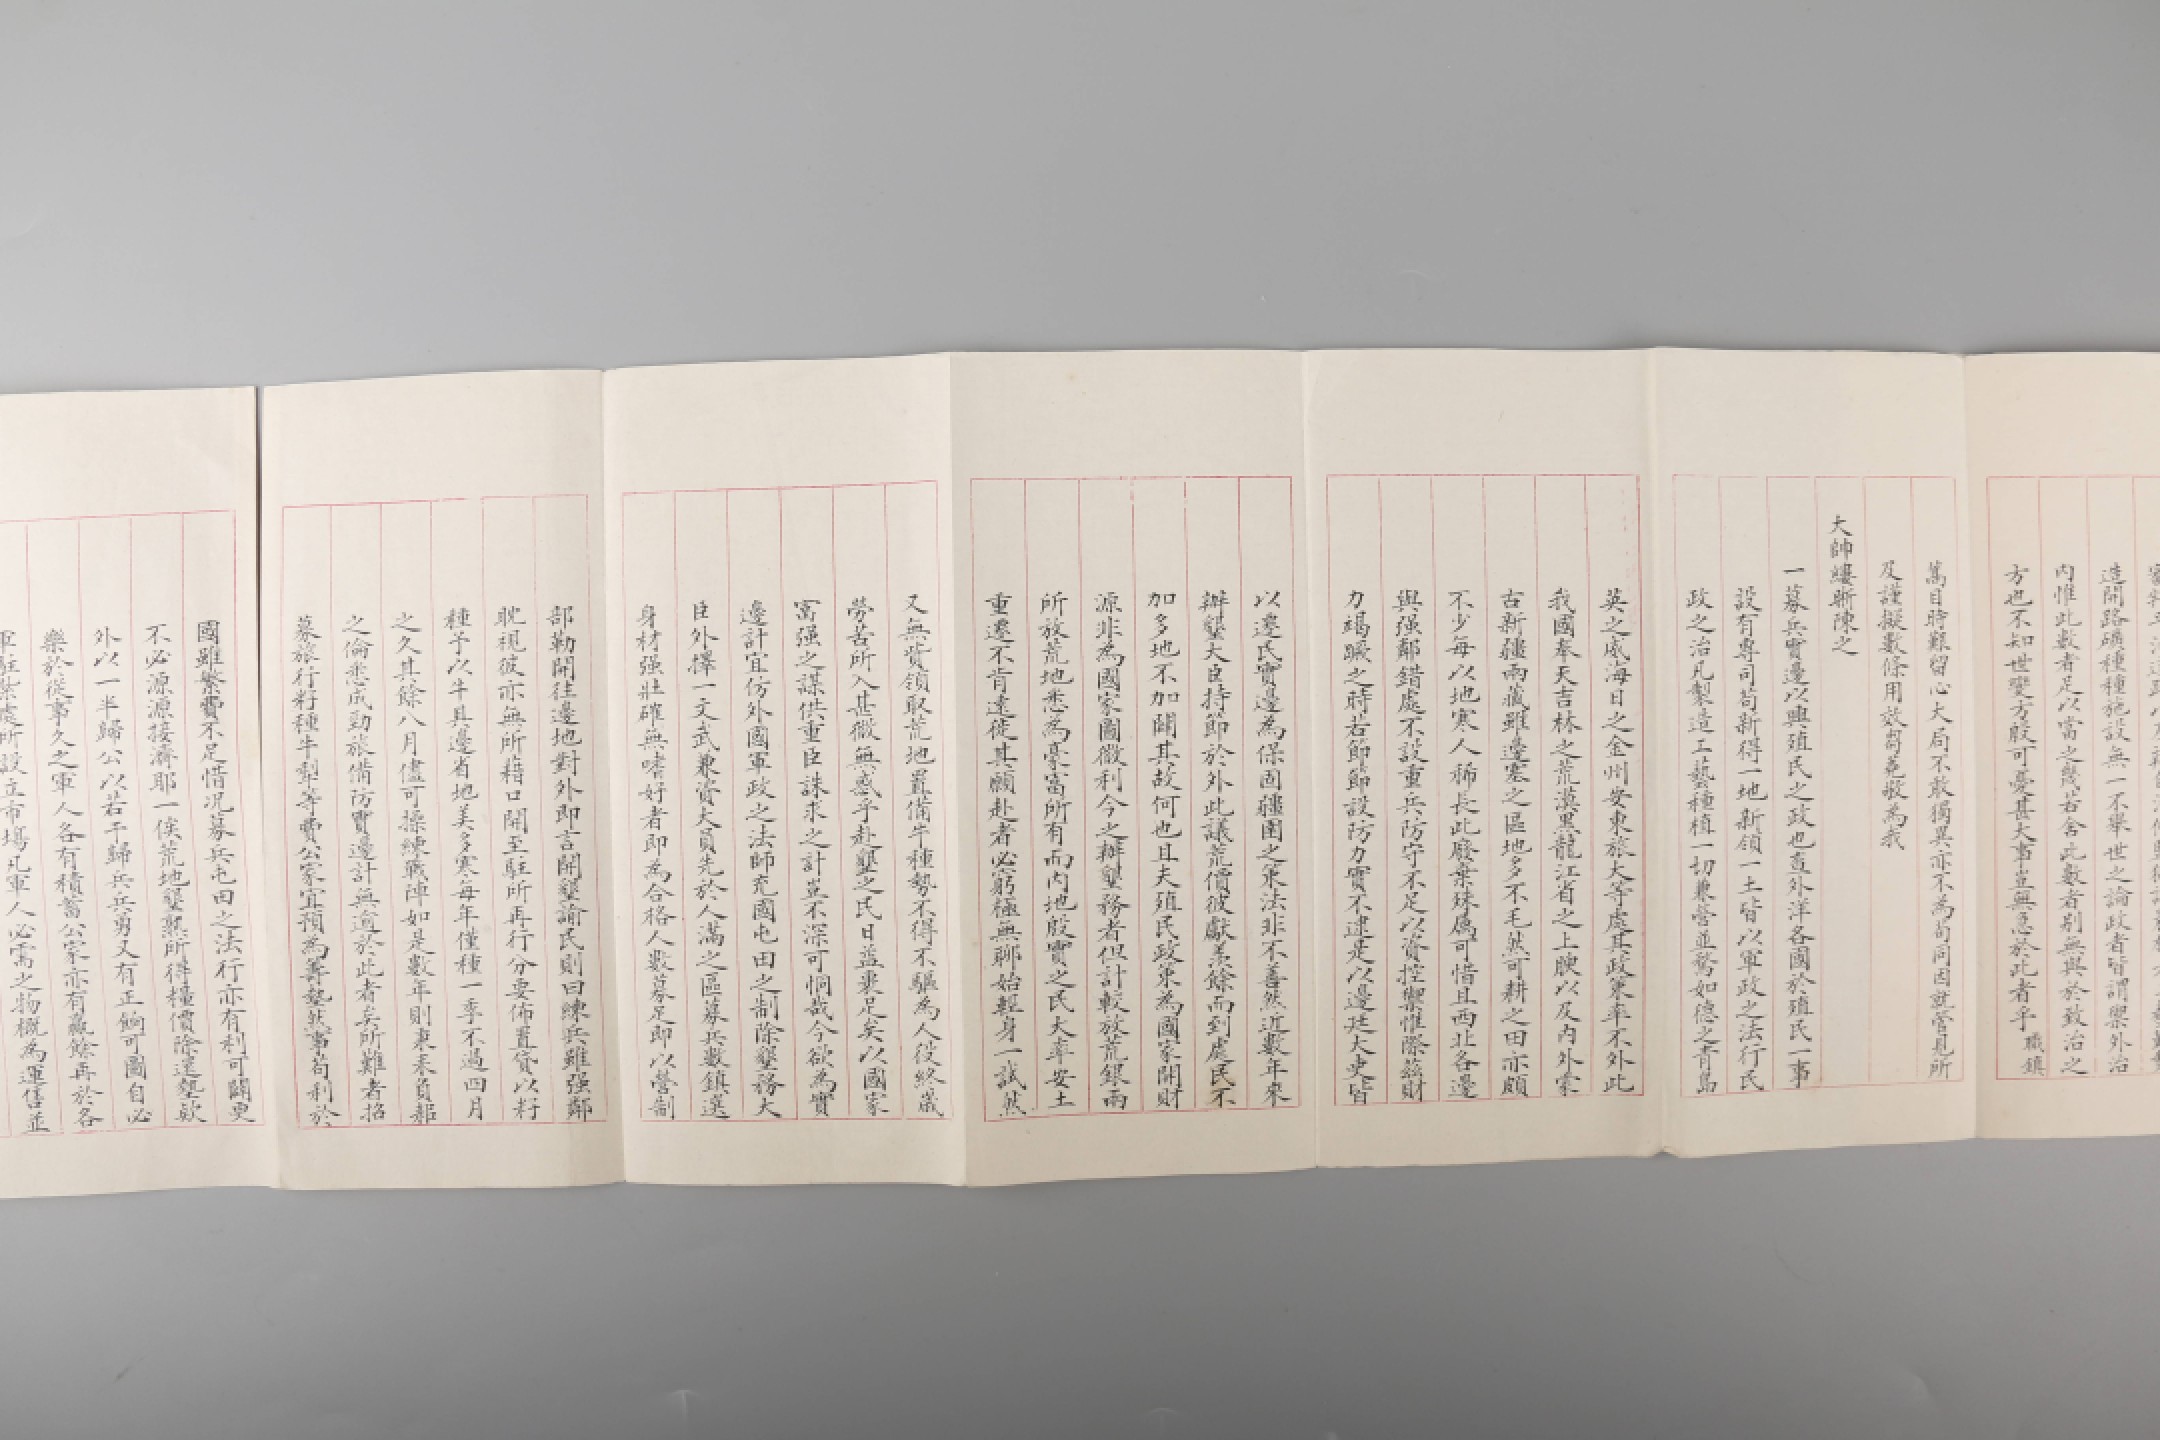 造開路礦種種施設無一不舉世之論政者皆謂禦外治
內惟此數者足以當之幾若舍此數者別無與於致治之
方也不知世變方殷可憂甚大事豈無急於此者乎職鎮
蒿目時艱留心大局不敢獨異亦不為苟同因就管見所
及謹擬數條用效芻蕘敬為我
大帥縷晰陳之
一募兵實邊以興殖民之政也查外洋各國於殖民一事
設有專司苟新得一地新領一土皆以軍政之法行民
政之治凡製造工藝種植一切兼營並騖如德之青島
英之威海日之金州安東旅大等處其政策率不外此
我國奉天吉林之荒漠黑龍江省之上腴以及內外蒙
古新疆兩藏雖邊塞之區地多不毛然可耕之田亦頗
不少每以地寒人稀長此廢棄殊屬可惜且西北各邊
與强鄰錯處不設重兵防守不足以資控禦惟際茲財
力竭蹶之時若節節設防力實不逮是以邊廷大吏皆
以遷民實邊為保固疆圉之策法非不善然近數年來
辦墾大臣持節於外此議荒價彼獻羨餘而到處民不
加多地不加闢其故何也且夫殖民政策為國家開財
源非為國家圖徵利今之辦墾務者但計較放荒銀兩
所放荒地悉為豪富所有而內地殷實之民大率安土
重遷不肯遠徙其願赴者必窮極無聊始輕身一試然
又無貲領取荒地置備牛種勢不得不驅為人役終歲
勞苦所入甚微無惑乎赴墾之民日益裹足矣以國家
富强之謀供重臣誅求之計豈不深可恫哉今欲為實
邊計宜仿外國軍政之法師充國屯田之制除墾務大
臣外擇一文武兼資大員先於人滿之區募兵數鎮選
身材强壯確無嗜好者即為合格人數募足即以營制
部勒開往邊地對外即言開墾諭民則曰練兵雖强鄰
眈視彼亦無所藉口開至駐所再行分要佈置貸以籽
種予以牛具邊省地美多寒每年僅種一季不過四月
之久其餘八月儘可操練戰陣如是數年則秉耒負耜
之倫悉成勁旅備防實邊計無逾於此者矣所難者招
募旅行籽種牛犁等費公家宜預為籌墊然事苟利於
國雖繁費不足惜況募兵屯田之法行亦有利可闢更
不必源源接濟耶一俟荒地墾熟所得糧價除還墊欵
外以一半歸公以若干歸兵兵勇又有正餉可圖自必
樂於從事久之軍人各有積蓄公家亦有羸餘再於各
軍駐紮處所設立市場凡軍人必需之物概為運售並